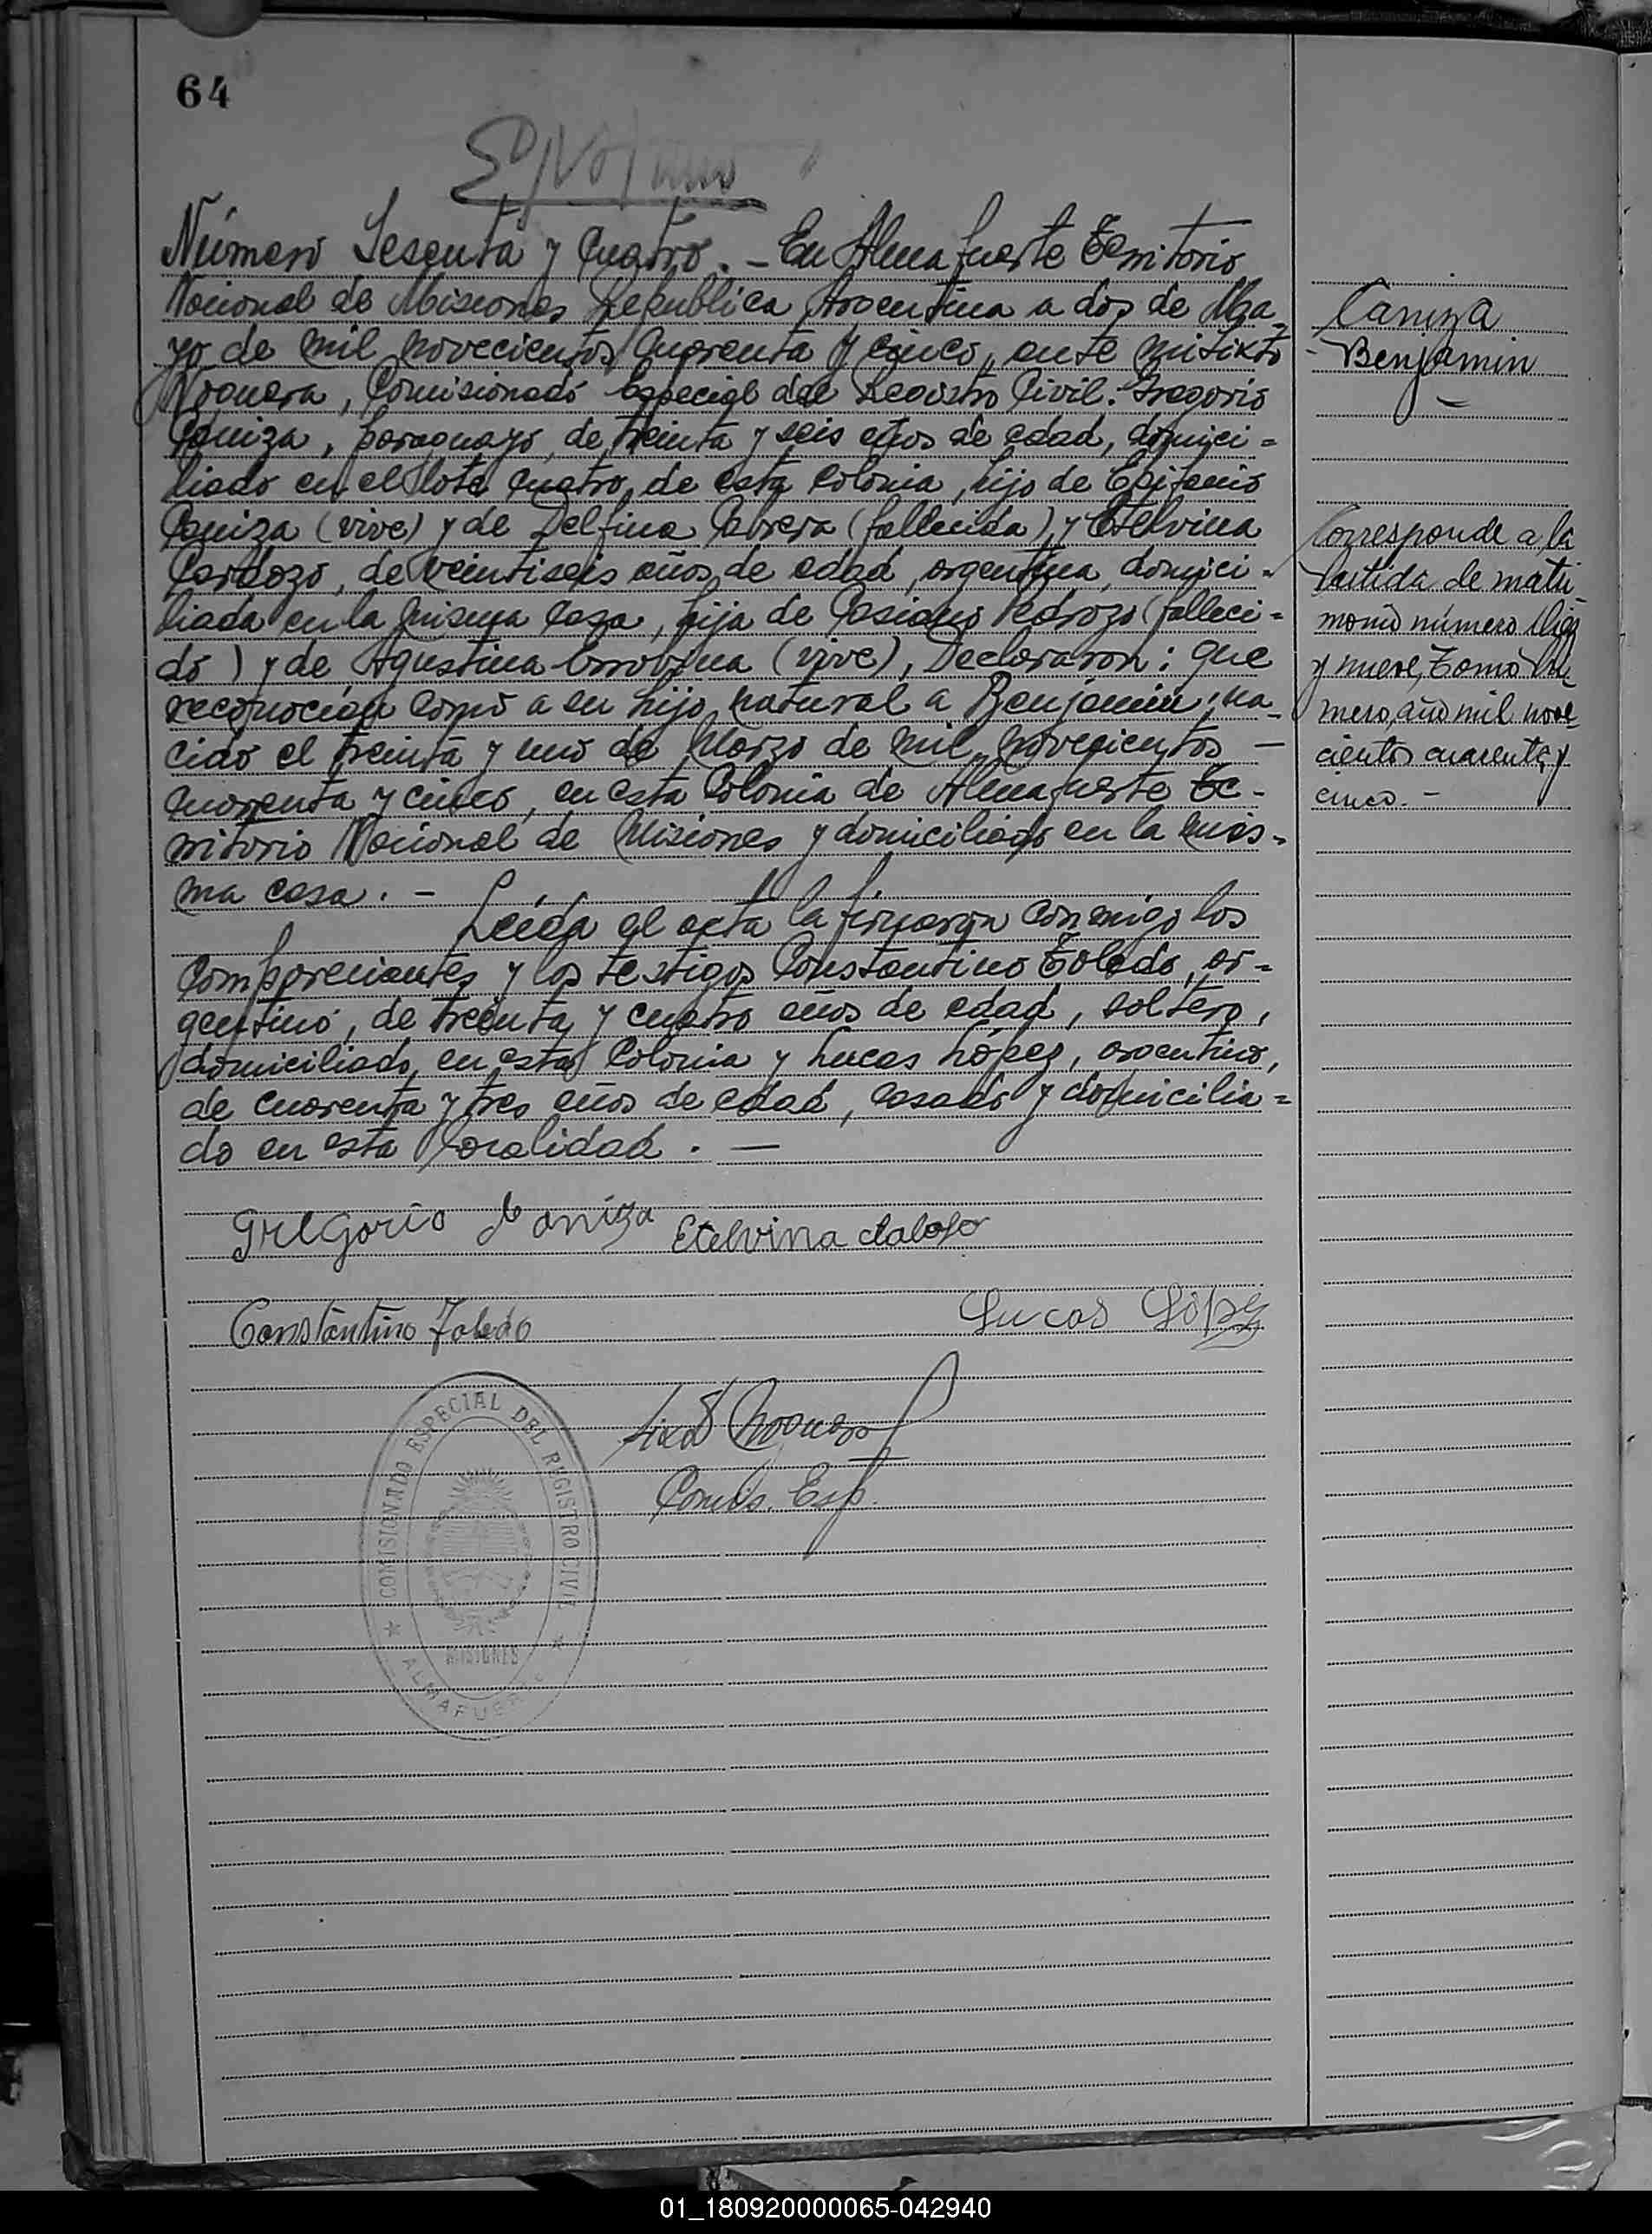 64
Número Sesenta y Cuatro. - En Almafuerte Territorio
Nacional de Misiones República Argentina a dos de Ma-
yo de mil novecientos cuarenta y cinco, ante mi Sixto
Noguera, Comisionado Especial del Registro Civil: Gregorio
Caniza, paraguayo, de treinta y seis años de edad, domici=
liado en el lote cuatro de esta colonia, hijo de Epifanio
Caniza (vive) y de Delfina Cabrera (fallecida), y Etelvina
Cardozo, de veintiseis años de edad, argentina, domici=
liada en la misma casa, hija de Casiano Pedrozo (falleci=
do) y de Agustina (vive), Declararon: que
reconocian como a su hijo natural a Benjamin; na-
cido el treinta y uno de Marzo de mil novecientos -
cuarenta y cinco, en esta Colonia de Almafuerte Te-
rritorio Nacional de Misiones y domiciliado en la mis-
ma casa. -
Leída el acta la firmaron conmigo los
comparecientes y los testigos Constantino Toledo, ar=
gentino, de treinta y cuatro años de edad, soltero,
domiciliado en esta Colonia y Lucas López, argentino,
de cuarenta y tres años de edad, casado y domicilia=
do en esta localidad. -
Gregorio Caniza Etelvina
Constantino Toledo
Lucas López
Sixto Noguera
Comis. Esp.
COMISIONADO ESPECIAL DEL REGISTRO CIVIL
MISIONES
ALMAFUERTE
Caniza
Benjamin
Corresponde a la
Partida de matri-
monio número diez
y nueve, Tomo Pri-
mero, año mil nove-
cientos cuarenta y
cinco. -
01_180920000065-042940